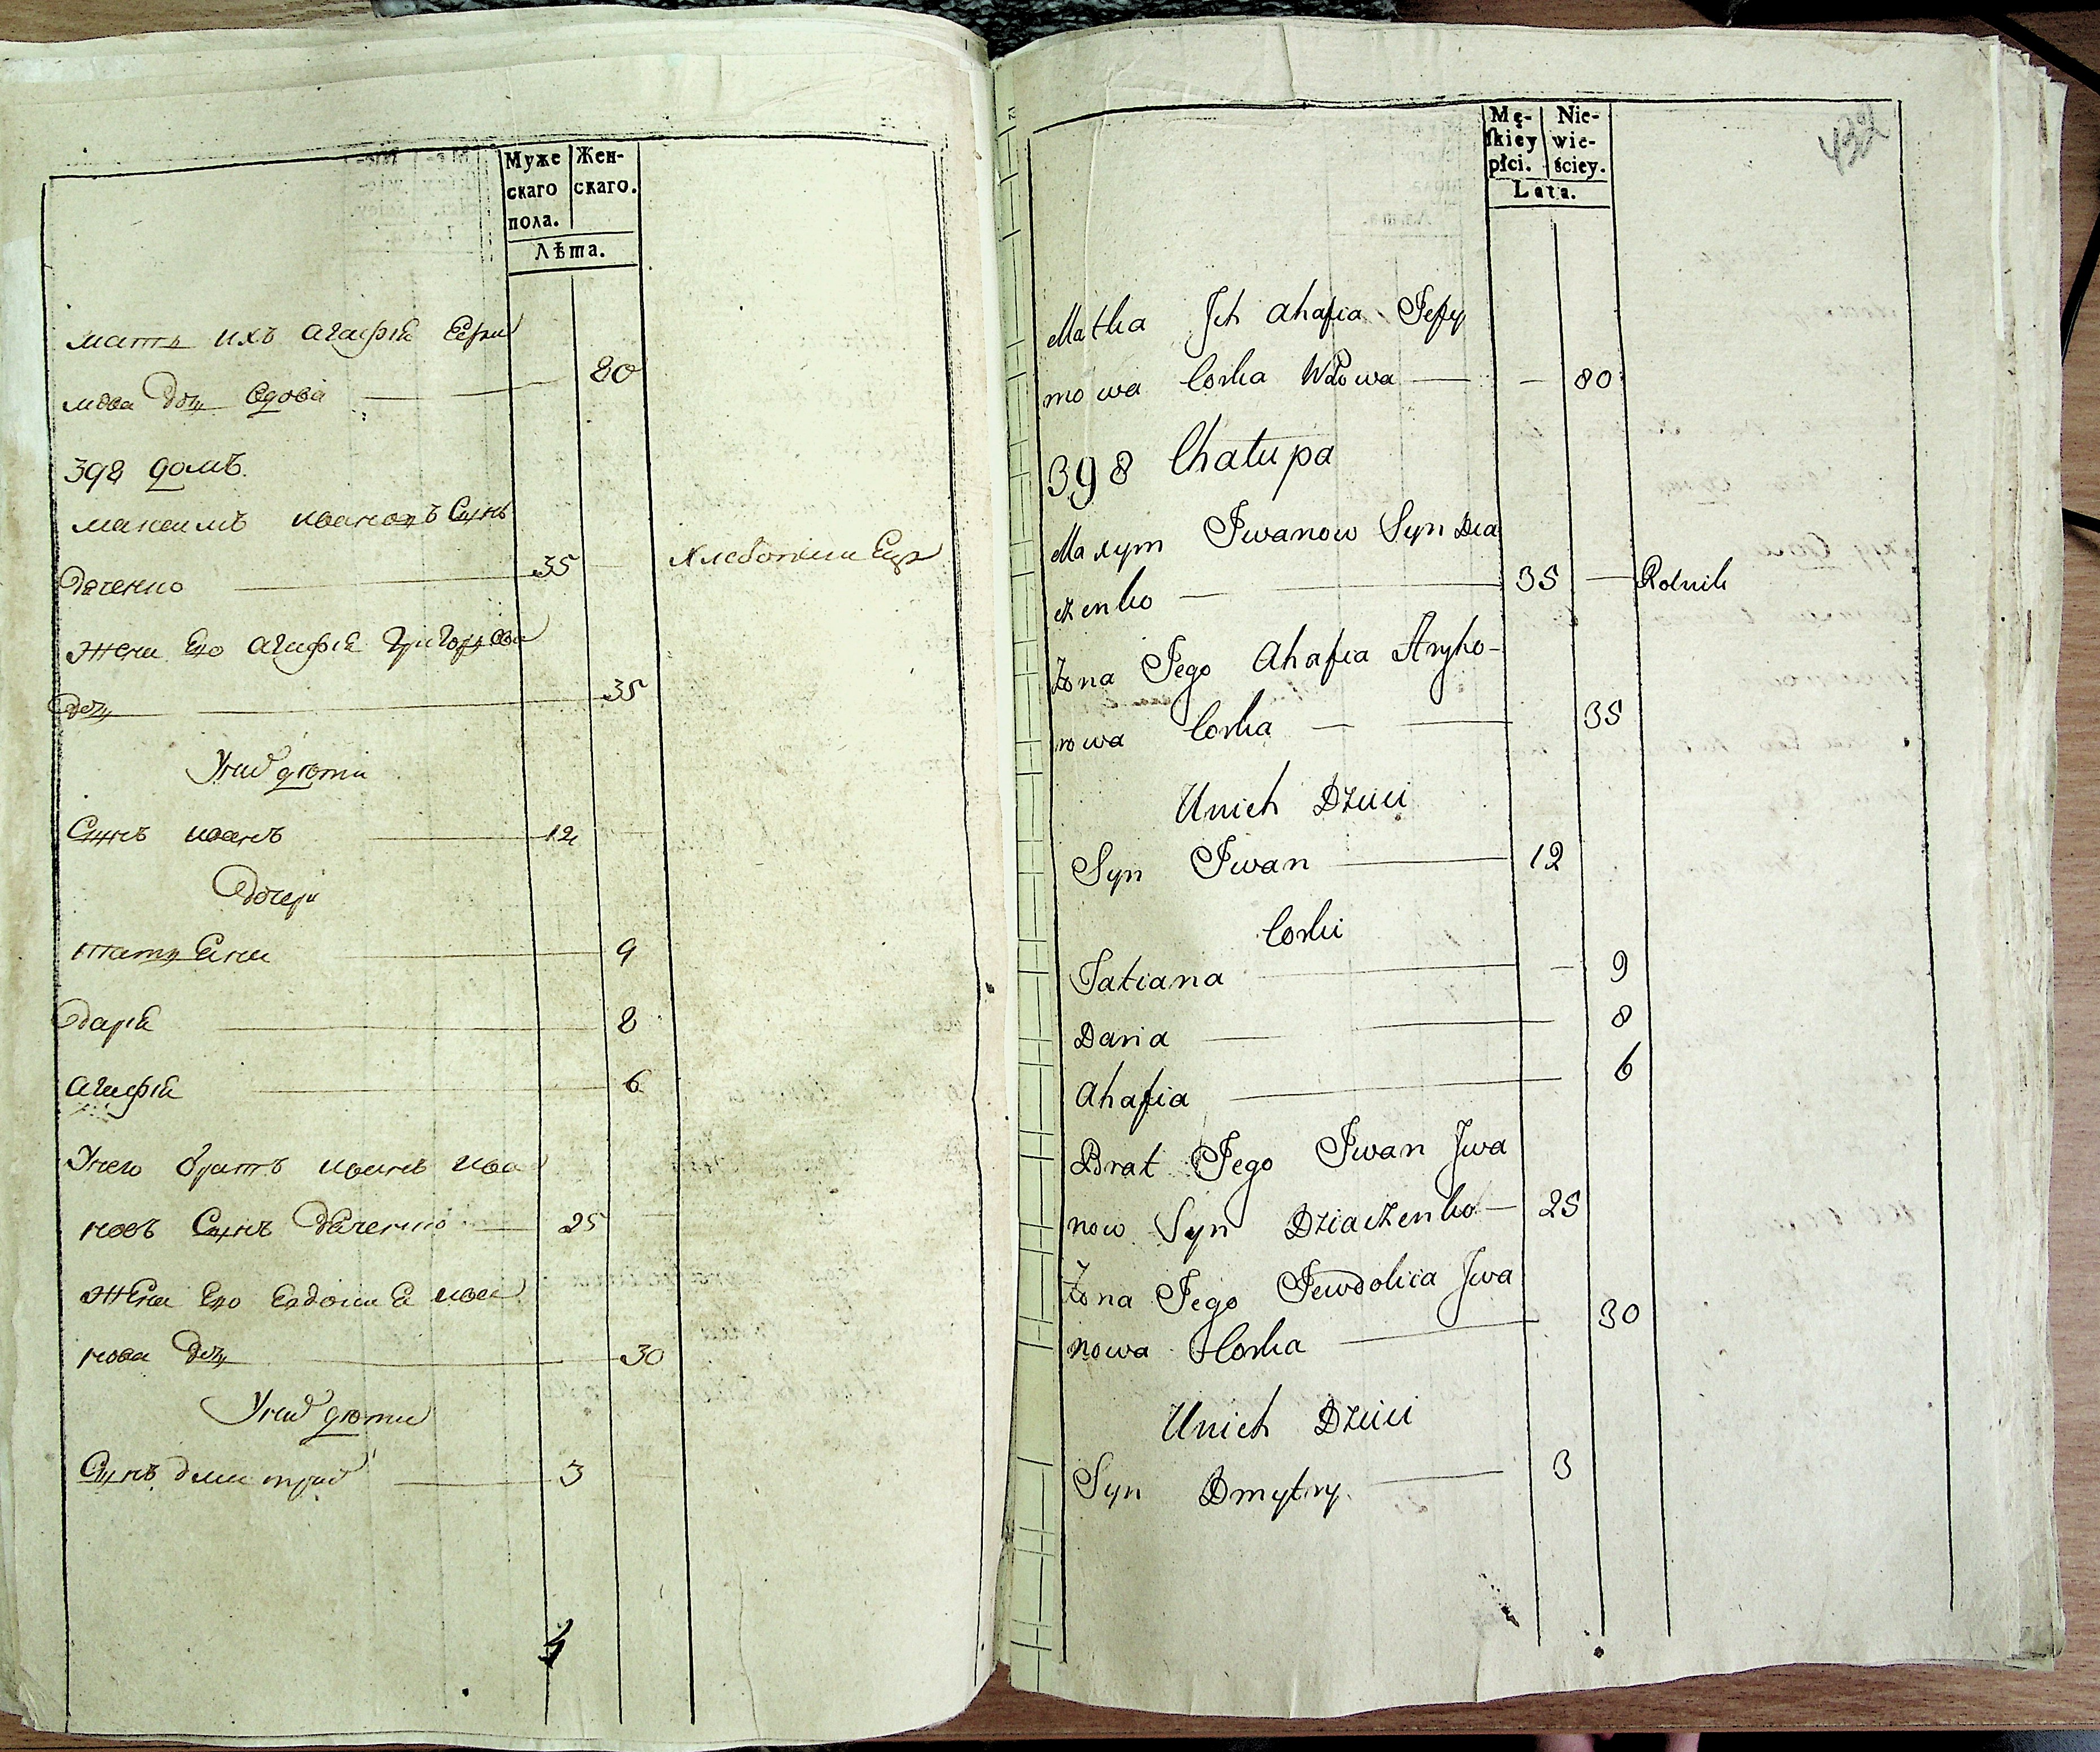 Муже
скаго
пола.
Жен-
скаго.
Лѣта.
мать ихъ агафіа Ефи
мова доч вдова — 80
398 домъ
максимъ ивановъ Сынъ
дяченко — 35 — Хлебопашецъ
жена Его агафіа Григорова
доч — 35
Уних дѣти
Сынъ иванъ — 12
дочери
татьяна — 9
дарія — 8
агафія — 6
Унего братъ иванъ ива
новъ Сынъ дяченко — 25
жена Его Евдокиа ива
нова доч — 30
Уних дѣти
Сынъ дмитрий — 3
Mę-
ſkiey
płci.
Nie-
wie-
ściey.
Lata.
432
Matka Jch Ahafia Jefy
mowa Corka Wdowa — — 80
398 Chałupa
Maxym Jwanow Syn Dia
czenko — 35 — Rolnik
Żona Jego Ahafia Hryho-
rowa Corka — 35
Unich Dzieci
Syn Jwan — 12
Corki
Tatiana — — 9
Daria — 8
Ahafia — 6
Brat Jego Jwan Jwa
now Syn Dziaczenko — 25
Żona Jego Jewdokia Jwa
nowa Corka — 30
Unich Dzieci
Syn Dmytry — 3